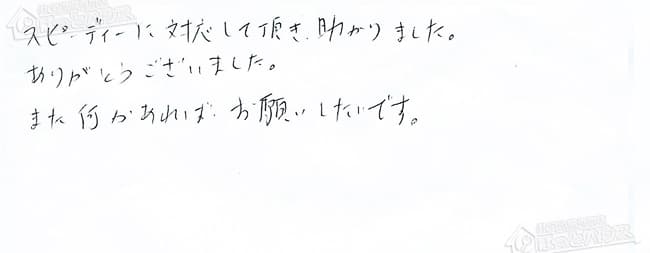 スピーディーに対応して頂き、助かりました。
ありがとうございました。
また何かあれば、お願いしたいです。
ほっとハウス